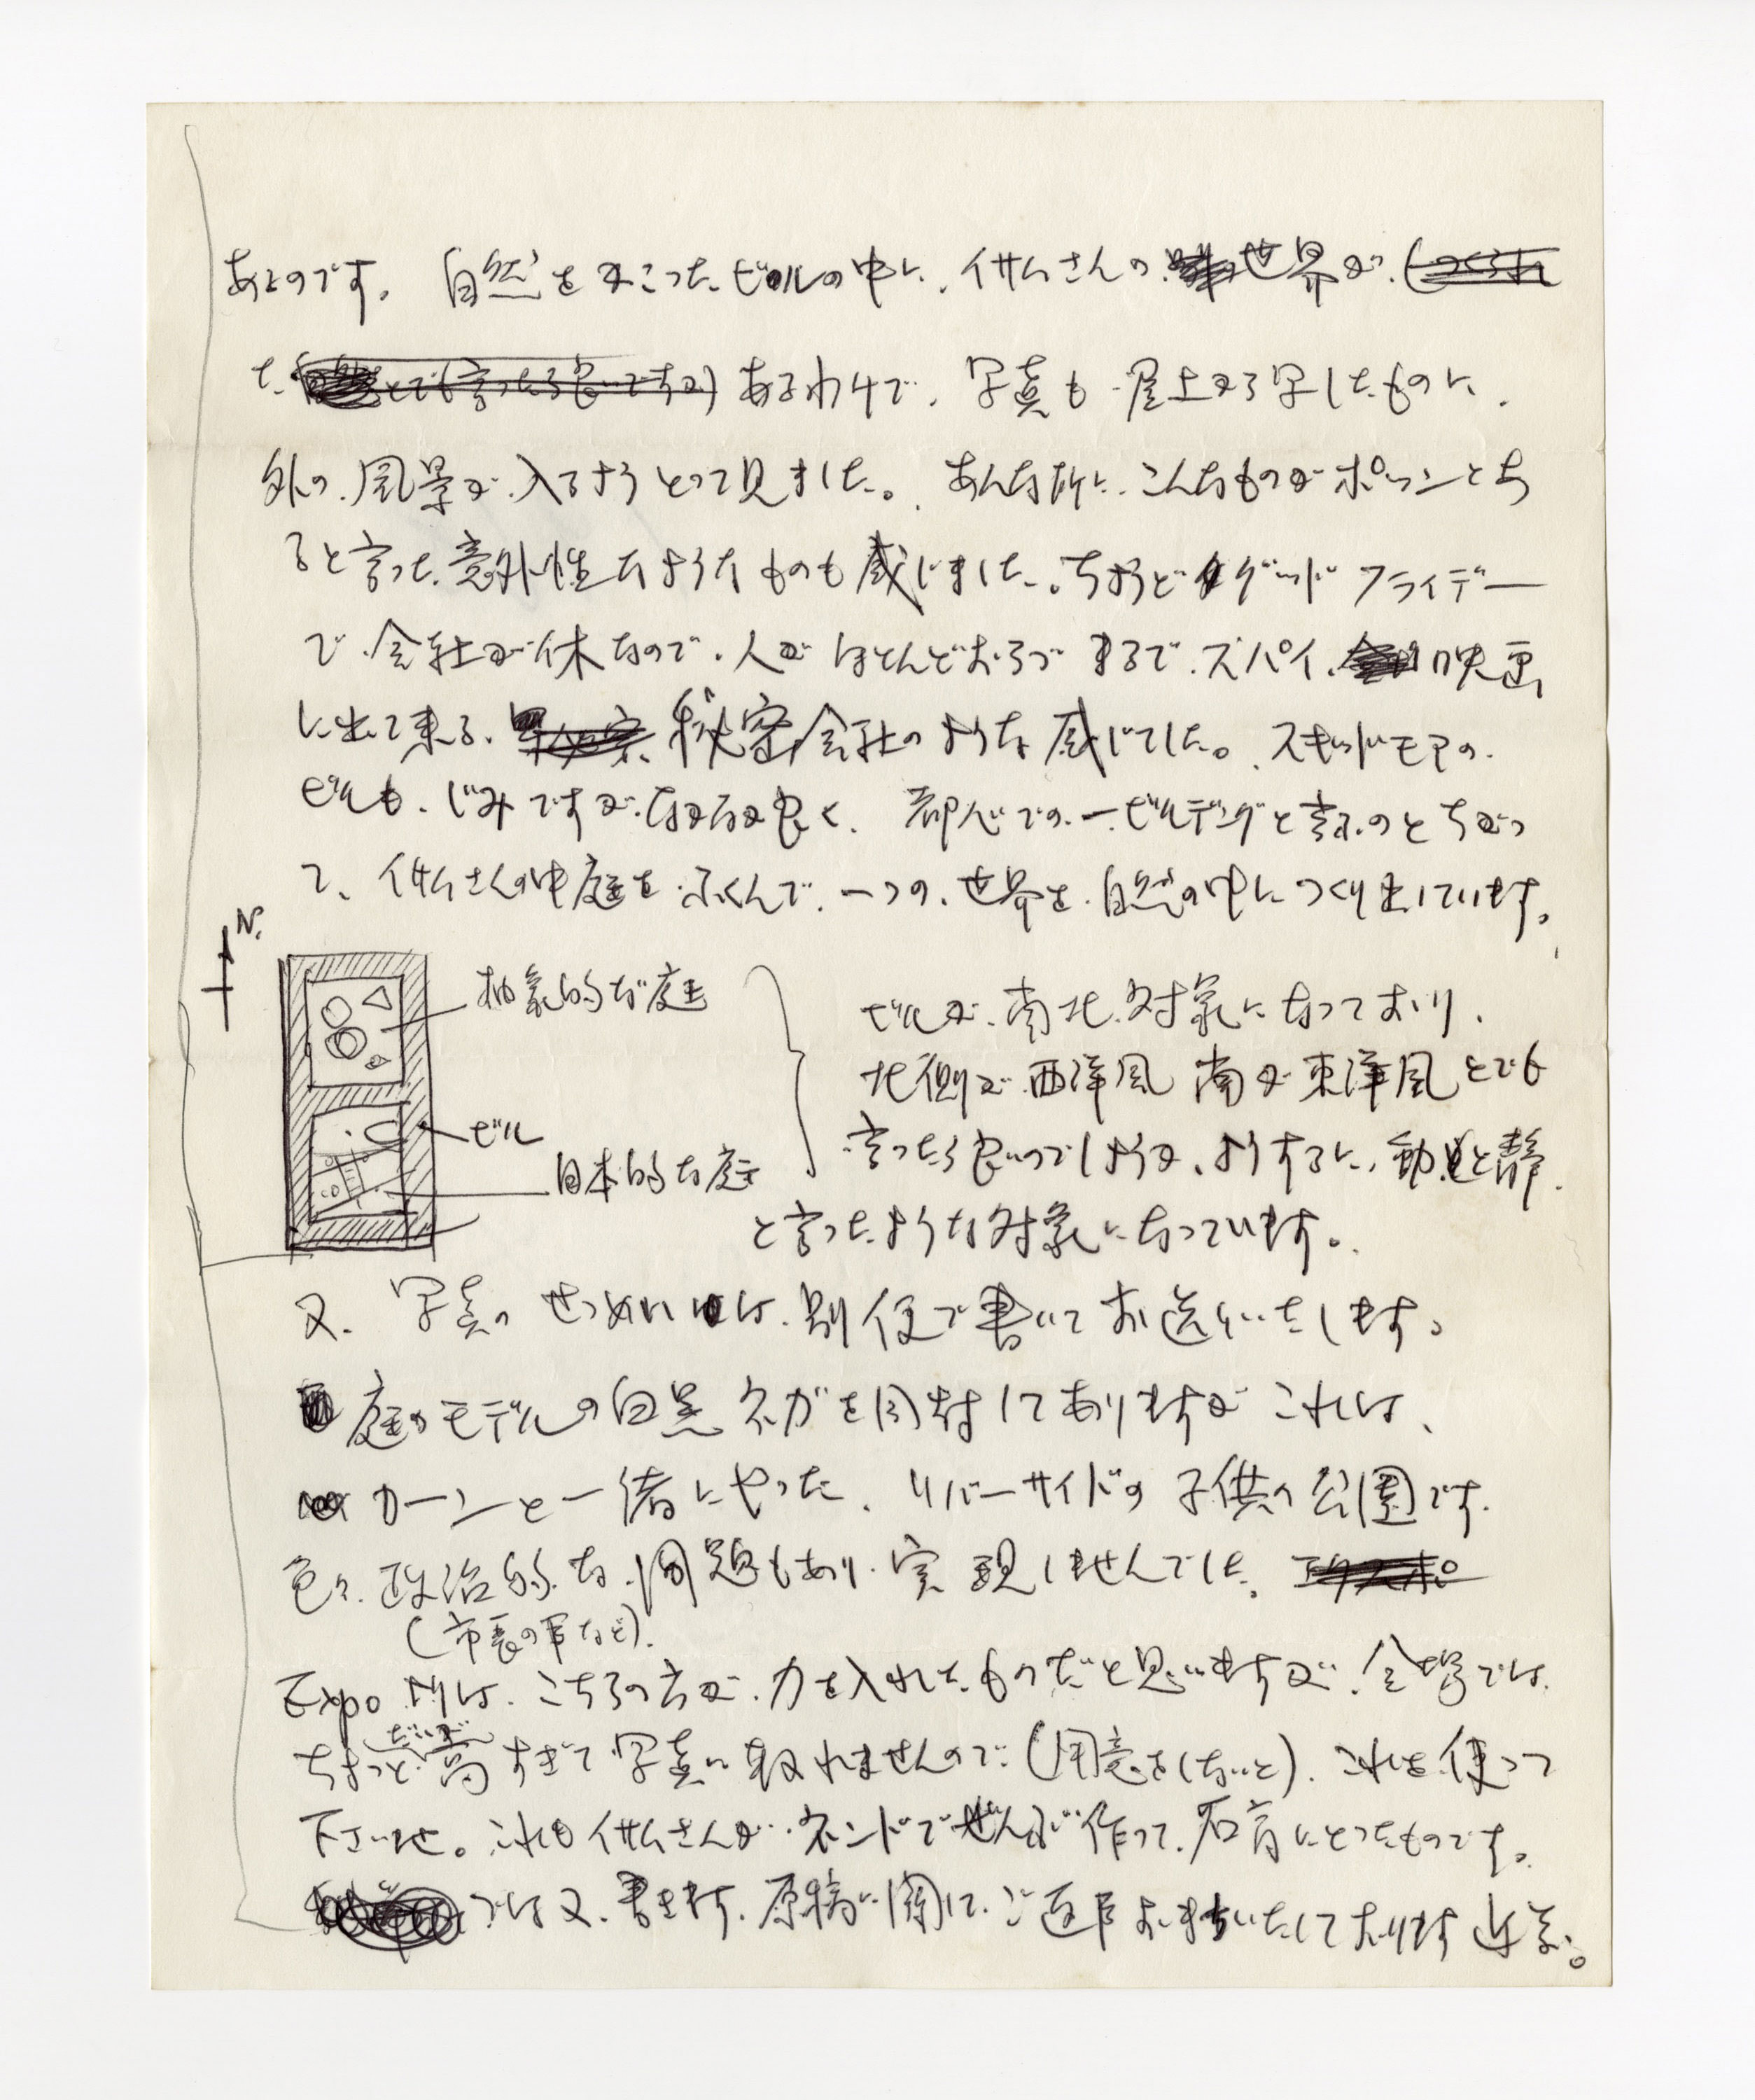 あとのです。 自然をかこったビルの中に、イサムさんの世界が、
あるわけで、写真も屋上から写したものに、
外の風景が入るようとって見ました。あんな所に、こんなものがポツンとあ
ると言った意外性なようなものも感じました。ちょうどグッドフライデー
で会社が休なので、人がほとんどおらづまるで、スパイ、映画
に出て来る、秘密会社のような感じでした。スキッドモアの
ビルも、じみですが、なかなか良く、都心での一ビルデングと言ふのとちがっ
て、イサムさんの中庭をふくんで、一つの、世界を自然の中につくり出しています。
N.
抽象的な庭
ビル
日本的な庭
ビルが、南北対象になっており、
北側が西洋風 南が東洋風とでも
言ったら良いのでしょうか、ようするに、動と静
と言ったような対象になっています。
又、写真のせつめいは、別便で書いてお送りいたします。
庭のモデルの白黒ネガを同封してありますがこれは、
カーンと一緒にやった、リバーサイドの子供の公園です。
色々政治的な問題もあり実現しませんでした。
(市長の事など).
Expo は、こちらの方が、力を入れたものだと思いますが、会場では、
だいが
ちょっと高すぎて写真に取れませんので(用意をしないと)、これを使って
下さいませ。これもイサムさんが、ネンドでぜんぶ作って、石膏にとったものです。
では又、書きます、原稿に関して、ご返事お待ちいたしております